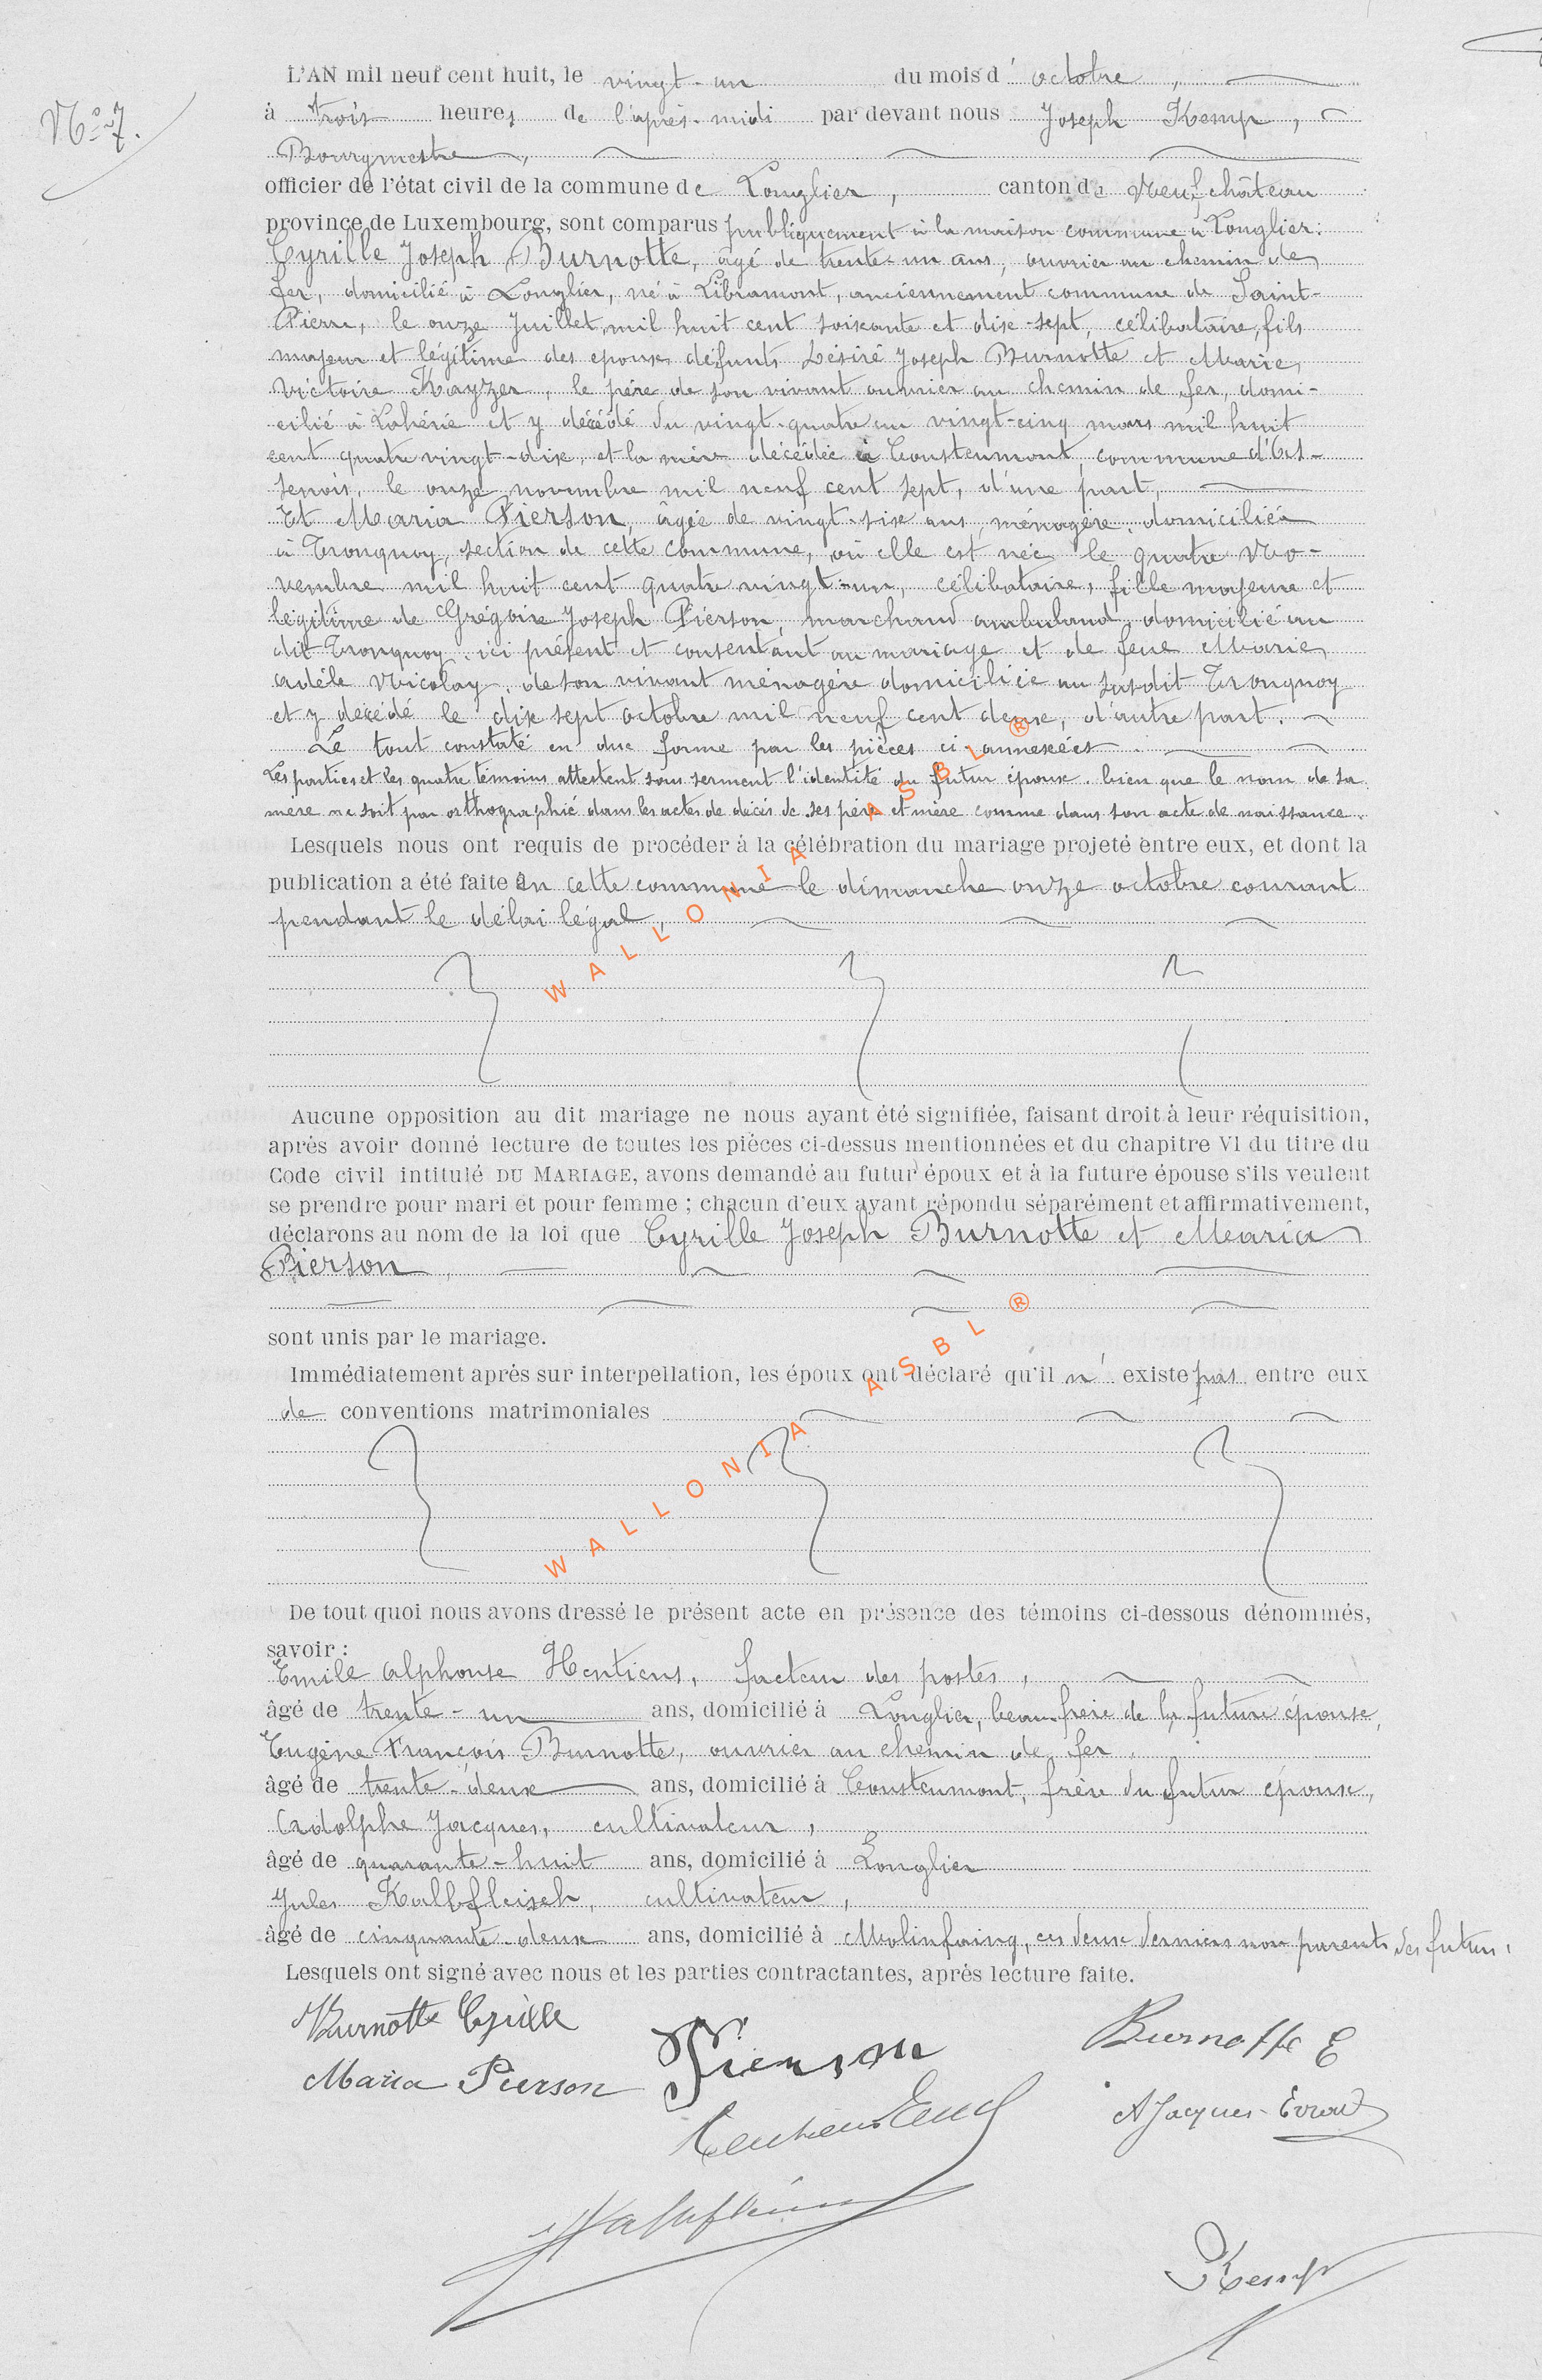 N° 7.
L'AN mil neuf cent huit, le vingt-un du mois d'octobre,
à trois heures de l'après-midi par devant nous Joseph Kemp,
Bourgmestre,
officier de l'état civil de la commune de Longlier, canton de Neufchâteau
province de Luxembourg, sont comparus publiquement à la maison commune à Longlier:
Cyrille Joseph Burnotte, âgé de trente-un ans, ouvrier au chemin de
fer, domicilié à Longlier, né à Libramont, anciennement commune de Saint-
Pierre, le onze Juillet mil huit cent soixante et dix-sept, célibataire, fils
majeur et légitime des epoux défunts Désiré Joseph Burnotte et Marie
Victoire Kayzer, le père de son vivant ouvrier au chemin de fer, domi-
cilié à Lahérie et y décédé du vingt-quatre au vingt-cinq mars mil huit
cent quatre vingt-dix, et la mère décédée à Cousteumont, commune d'As-
senois, le onze novembre mil neuf cent sept, d'une part,
Et Maria Pierson, âgée de vingt-six ans, ménagère, domiciliée
à Tronquoy, section de cette commune, où elle est née le quatre No-
vembre mil huit cent quatre vingt-un, célibataire, fille majeure et
légitime de Grégoire Joseph Piérson, marchand ambuland, domicilié au
dit Tronquoy, ici présent et consentant au mariage et de feue Marie
Adèle Nicolay, de son vivant ménagère domiciliée au susdit Tronquoy
et y décédé le dix sept octobre mil neuf cent deux, d'autre part.
Le tout constaté en due forme par les pièces ci-annexées.
Les parties et les quatre témoins attestent sous serment l'identité du futur époux, bien que le nom de sa
mère ne soit pas orthographié dans les actes de décès de ses père et mère comme dans son acte de naissance.
Lesquels nous ont requis de procéder à la célébration du mariage projeté entre eux, et dont la
publication a été faite en cette commune le dimanche onze octobre courant
pendant le délai légal,
WALLONIA ASBL ®
Aucune opposition au dit mariage ne nous ayant été signifiée, faisant droit à leur réquisition,
après avoir donné lecture de toutes les pièces ci-dessus mentionnées et du chapitre VI du titre du
Code civil intitulé DU MARIAGE, avons demandé au futur époux et à la future épouse s'ils veulent
se prendre pour mari et pour femme ; chacun d'eux ayant répondu séparément et affirmativement,
déclarons au nom de la loi que Cyrille Joseph Burnotte et Maria
Pierson,
sont unis par le mariage.
Immédiatement après sur interpellation, les époux ont déclaré qu'il n'existe pas entre eux
de conventions matrimoniales
WALLONIA ASBL ®
De tout quoi nous avons dressé le présent acte en présence des témoins ci-dessous dénommés,
savoir :
Emile Alphonse Hentiens, facteur des postes,
âgé de trente-un ans, domicilié à Longlier, beau-frère de la future épouse,
Eugène François Burnotte, ouvrier au chemin de fer,
âgé de trente-deux ans, domicilié à Cousteumont, frère du futur époux,
Adolphe Jacques, cultivateur,
âgé de quarante-huit ans, domicilié à Longlier
Jules Kalbfleisch, cultivateur,
âgé de cinquante-deux ans, domicilié à Molinfaing, ces deux derniers non parents des futurs.
Lesquels ont signé avec nous et les parties contractantes, après lecture faite.
Burnotte Cyrille
Burnotte E
Pierson
Maria Pierson
A Jacques-Evrard
Kemp